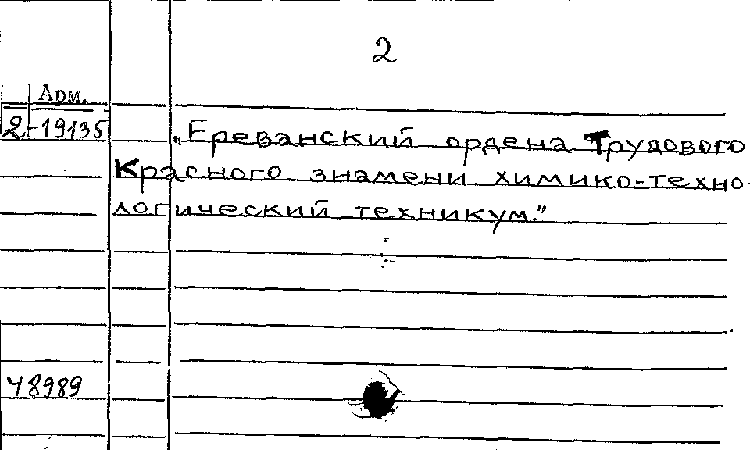 2
Арм.
2-19135
„Ереванский ордена Трудового
Красного знамени химико-техно-
логический техникум."
48989